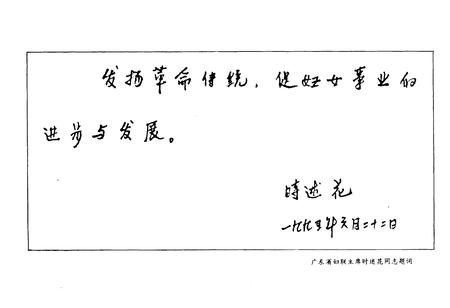 发扬革命传统，促妇女事业的
进步与发展。
時述花
一九九五年六月二十二日
广东省妇联主席时述花同志题词